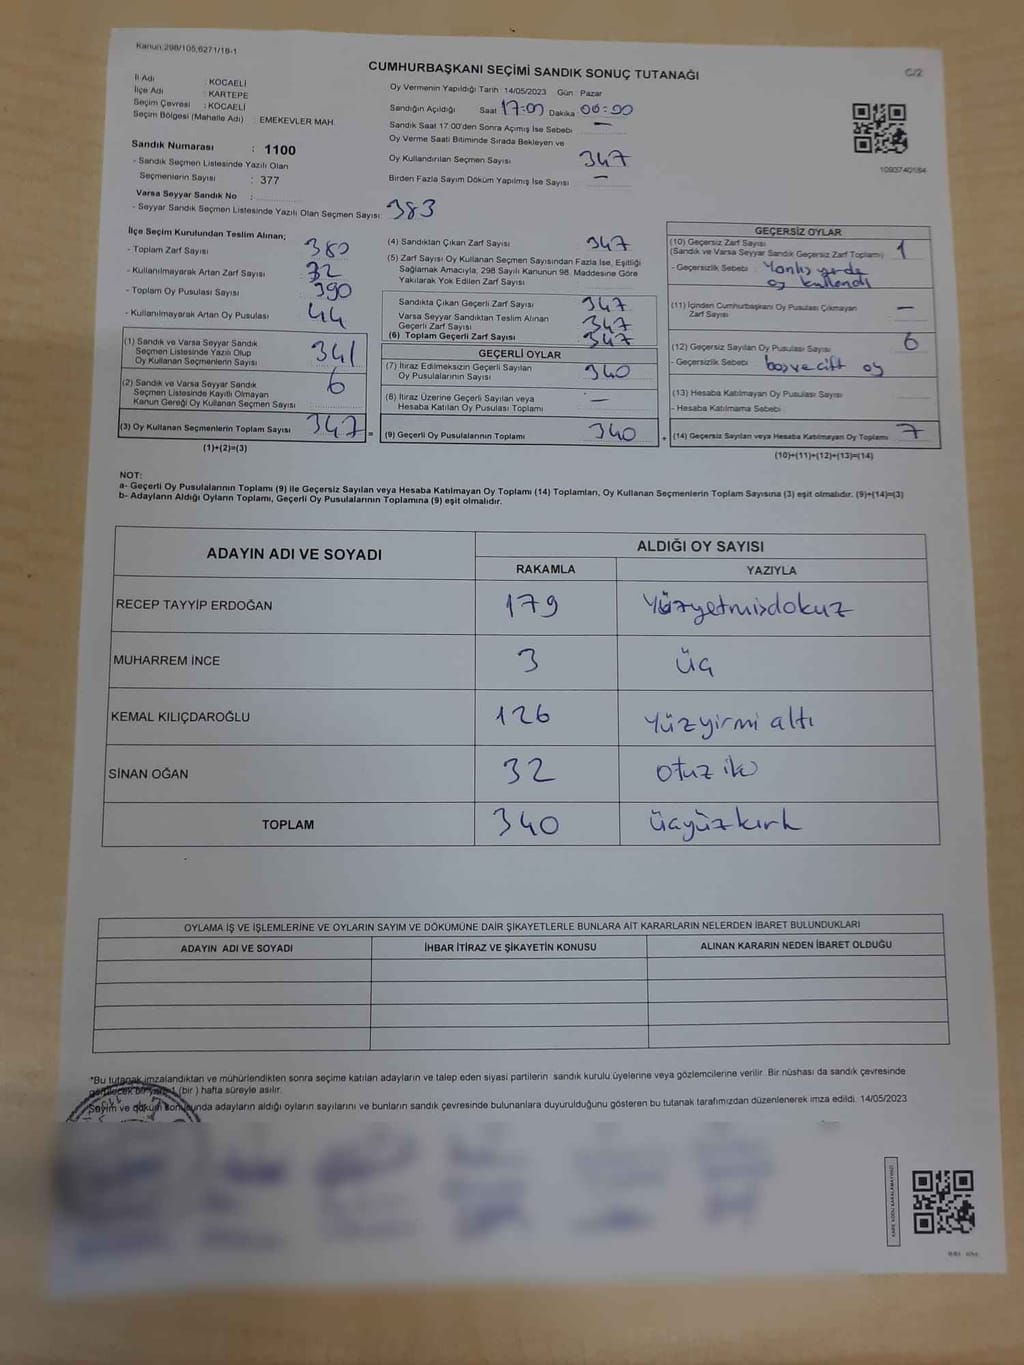 Kanun:298/105,6271/16-1
CUMHURBAŞKANI SEÇİMİ SANDIK SONUÇ TUTANAĞI
C/2
İl Adı : KOCAELİ
İlçe Adı : KARTEPE
Seçim Çevresi : KOCAELİ
Seçim Bölgesi (Mahalle Adı) : EMEKEVLER MAH.
Sandık Numarası : 1100
- Sandık Seçmen Listesinde Yazılı Olan
Seçmenlerin Sayısı : 377
Varsa Seyyar Sandık No :
- Seyyar Sandık Seçmen Listesinde Yazılı Olan Seçmen Sayısı: 383
Oy Vermenin Yapıldığı Tarih : 14/05/2023 Gün : Pazar
Sandığın Açıldığı Saat 17:00 Dakika 00:00
Sandık Saat 17.00'den Sonra Açılmış İse Sebebi —
Oy Verme Saati Bitiminde Sırada Bekleyen ve
Oy Kullandırılan Seçmen Sayısı 347
Birden Fazla Sayım Döküm Yapılmış İse Sayısı —
İlçe Seçim Kurulundan Teslim Alınan;
- Toplam Zarf Sayısı 380
- Kullanılmayarak Artan Zarf Sayısı 32
- Toplam Oy Pusulası Sayısı 390
- Kullanılmayarak Artan Oy Pusulası 44
(1) Sandık ve Varsa Seyyar Sandık
Seçmen Listesinde Yazılı Olup
Oy Kullanan Seçmenlerin Sayısı 341
(2) Sandık ve Varsa Seyyar Sandık
Seçmen Listesinde Kayıtlı Olmayan
Kanun Gereği Oy Kullanan Seçmen Sayısı 6
(3) Oy Kullanan Seçmenlerin Toplam Sayısı 347
(1)+(2)=(3)
(4) Sandıktan Çıkan Zarf Sayısı 347
(5) Zarf Sayısı Oy Kullanan Seçmen Sayısından Fazla İse, Eşitliği
Sağlamak Amacıyla, 298 Sayılı Kanunun 98. Maddesine Göre
Yakılarak Yok Edilen Zarf Sayısı
Sandıkta Çıkan Geçerli Zarf Sayısı 347
Varsa Seyyar Sandıktan Teslim Alınan
Geçerli Zarf Sayısı 347
(6) Toplam Geçerli Zarf Sayısı 347
GEÇERLİ OYLAR
(7) İtiraz Edilmeksizin Geçerli Sayılan
Oy Pusulalarının Sayısı 340
(8) İtiraz Üzerine Geçerli Sayılan veya
Hesaba Katılan Oy Pusulası Toplamı —
(9) Geçerli Oy Pusulalarının Toplamı 340
GEÇERSİZ OYLAR
(10) Geçersiz Zarf Sayısı
(Sandık ve Varsa Seyyar Sandık Geçersiz Zarf Toplamı) 1
- Geçersizlik Sebebi : Yanlış yerde
oy kullendı
(11) İçinden Cumhurbaşkanı Oy Pusulası Çıkmayan
Zarf Sayısı —
(12) Geçersiz Sayılan Oy Pusulası Sayısı 6
- Geçersizlik Sebebi boş ve çift oy
(13) Hesaba Katılmayan Oy Pusulası Sayısı
- Hesaba Katılmama Sebebi
(14) Geçersiz Sayılan veya Hesaba Katılmayan Oy Toplamı 7
(10)+(11)+(12)+(13)=(14)
NOT:
a- Geçerli Oy Pusulalarının Toplamı (9) ile Geçersiz Sayılan veya Hesaba Katılmayan Oy Toplamı (14) Toplamları, Oy Kullanan Seçmenlerin Toplam Sayısına (3) eşit olmalıdır. (9)+(14)=(3)
b- Adayların Aldığı Oyların Toplamı, Geçerli Oy Pusulalarının Toplamına (9) eşit olmalıdır.
ADAYIN ADI VE SOYADI
ALDIĞI OY SAYISI
RAKAMLA YAZIYLA
RECEP TAYYİP ERDOĞAN 179 Yüzyetmişdokuz
MUHARREM İNCE 3 üç
KEMAL KILIÇDAROĞLU 126 Yüzyirmi altı
SİNAN OĞAN 32 otuz iki
TOPLAM 340 üçyüzkırk
OYLAMA İŞ VE İŞLEMLERİNE VE OYLARIN SAYIM VE DÖKÜMÜNE DAİR ŞİKAYETLERLE BUNLARA AİT KARARLARIN NELERDEN İBARET BULUNDUKLARI
ADAYIN ADI VE SOYADI İHBAR İTİRAZ VE ŞİKAYETİN KONUSU ALINAN KARARIN NEDEN İBARET OLDUĞU
*Bu tutanak imzalandıktan ve mühürlendikten sonra seçime katılan adayların ve talep eden siyasi partilerin sandık kurulu üyelerine veya gözlemcilerine verilir. Bir nüshası da sandık çevresinde
görülecek bir yere 1 (bir) hafta süreyle asılır.
Sayım ve döküm sonucunda adayların aldığı oyların sayılarını ve bunların sandık çevresinde bulunanlara duyurulduğunu gösteren bu tutanak tarafımızdan düzenlenerek imza edildi. 14/05/2023